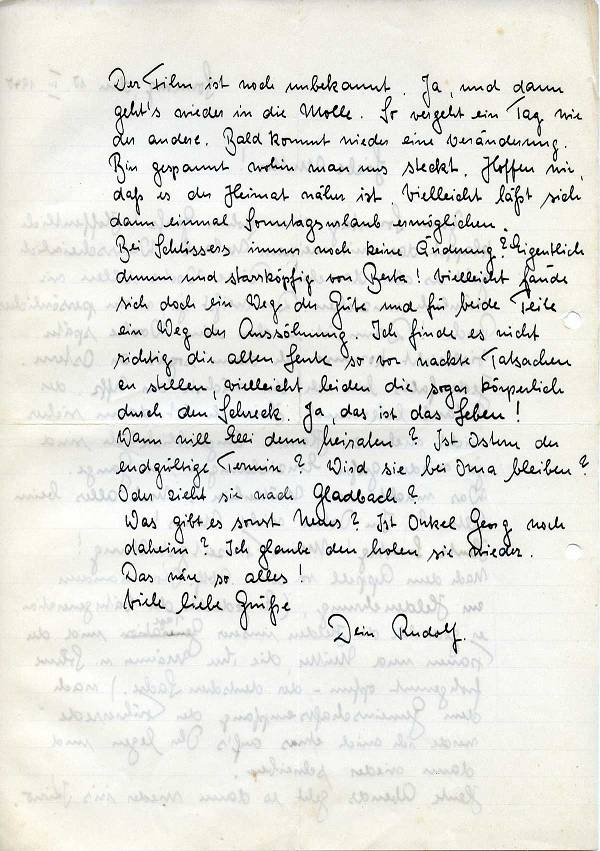 Der Film ist noch unbekannt. Ja, und dann
geht's wieder in die Molle. So vergeht ein Tag wie
der andere. Bald kommt wieder eine Veränderung.
Bin gespannt wohin man uns steckt. Hoffen wir,
daß es der Heimat näher ist. Vielleicht läßt sich
dann einmal Sonntagsurlaub ermöglichen.
Bei Schlössers immer noch keine Änderung? Eigentlich
dumm und starrköpfig von Berta! Vielleicht fände
sich doch ein Weg der Güte und für beide Teile
ein Weg der Aussöhnung. Ich finde es nicht
richtig die alten Leute so vor nackte Tatsachen
zu stellen, vielleicht leiden die sogar körperlich
durch den Schreck. Ja das ist das Leben!
Wann will Elli denn heiraten? Ist Ostern der
endgültige Termin? Wird sie bei Oma bleiben?
Oder zieht sie nach Gladbach?
Was gibt es sonst Neues? Ist Onkel Georg noch
daheim? Ich glaube den holen sie wieder.
Das wäre so alles!
Viele liebe Grüße
Dein Rudolf.